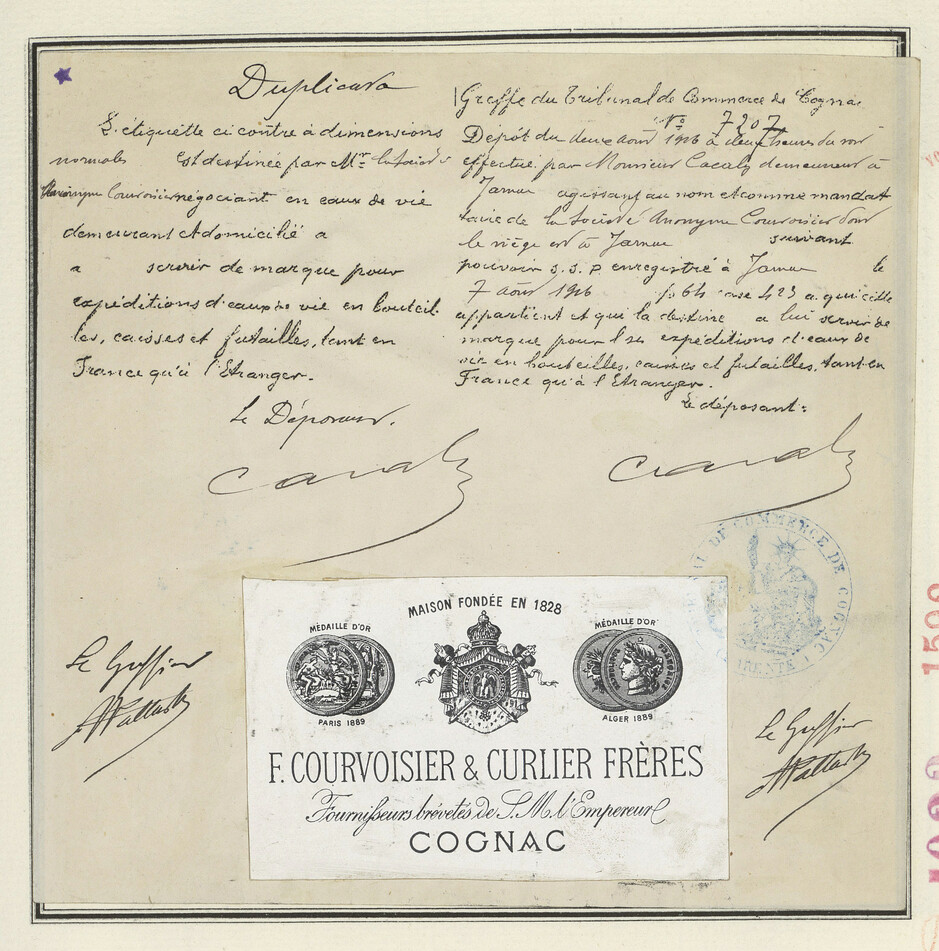 Duplicata
L'étiquette ci contre à dimensions
normales est destinée par Mr la Société
Anonyme Courvoisier négociant en eaux de vie
demeurant et domicilié a
a servir de marque pour
expéditions d'eaux de vie en bouteil
les, caisses et futailles, tant en
France qu'à l'Etranger.
Le Déposant.
Greffe du Tribunal de Commerce de Cognac
No 7207
Depôt du deux Août 1916 à deux heures du soir
effectué par Monsieur demeurant à
Jarnac agissant au nom et comme mandat
taire de la Société Anonyme Courvoisier dont
le siège est à Jarnac suivant
pouvoir s.s.p. enregistré à Jarnac le
7 Août 1916 fo 64 case 423 a qui cette
appartient et qui la destine a lui servir de
marque pour ses expéditions d'eaux de
vie en bouteilles, caisses et futailles, tant en
France qu'à l'Etranger.
Le déposant:
TRIBUNAL DE COMMERCE DE COGNAC
CHARENTE
MAISON FONDÉE EN 1828
MÉDAILLE D'OR
PARIS 1889
MÉDAILLE D'OR
ALGER 1889
F. COURVOISIER & CURLIER FRÈRES
Fournisseurs brévetés de S.M. l'Empereur
COGNAC
Le Greffier
Le Greffier